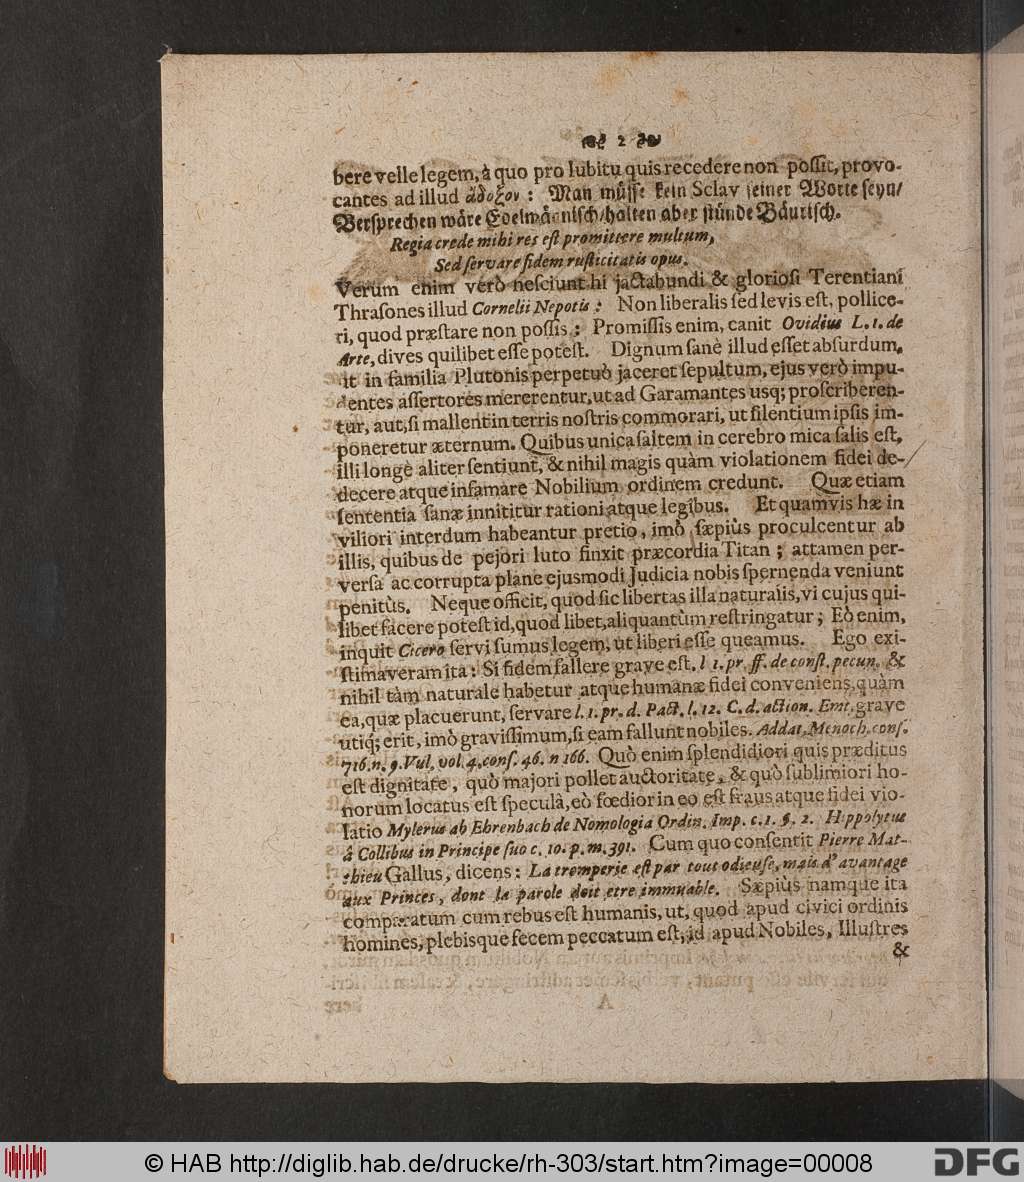 2
bere velle legem, à quo pro lubitu quis recedere non possit, provo-
cantes ad illud ἄδοξον: Man müsse kein Sclav seiner Worte seyn/
Versprechen wäre Edelmännisch/halten aber stünde Bäurisch.
Regia crede mihi res est promittere multum,
Sed servare fidem rusticitatis opus.
Verum enim verò nesciunt hi jactabundi & gloriosi Terentiani
Thrasones illud Cornelii Nepotis: Non liberalis sed levis est, pollice-
ri, quod præstare non possis: Promissis enim, canit Ovidius L. 1. de
Arte, dives quilibet esse potest. Dignum sanè illud esset absurdum,
ut in familia Plutonis perpetuò jaceret sepultum, ejus verò impu-
dentes assertores mererentur, ut ad Garamantes usq; proscriberen-
tur, aut, si mallent in terris nostris commorari, ut silentium ipsis im-
poneretur æternum. Quibus unica saltem in cerebro mica salis est,
illi longè aliter sentiunt, & nihil magis quàm violationem fidei de-
decere atque infamare Nobilium ordinem credunt. Quæ etiam
sententia sanæ innititur rationi atque legibus. Et quamvis hæ in
viliori interdum habeantur pretio, imò sæpiùs proculcentur ab
illis, quibus de pejori luto finxit præcordia Titan; attamen per-
versa ac corrupta plane ejusmodi Judicia nobis spernenda veniunt
penitùs. Neque officit, quod sic libertas illa naturalis, vi cujus qui-
libet facere potest id, quod libet, aliquantùm restringatur; Eò enim,
inquit Cicero servi sumus legem, ut liberi esse queamus. Ego exi-
stimaveram ita: Si fidem fallere grave est. l 1. pr. ff. de const. pecun. &
nihil tàm naturale habetur atque humanæ fidei conveniens, quàm
ea, quæ placuerunt, servare l. 1. pr. d. Pact. l. 12. C. d. action. Emt. grave
utiq; erit, imò gravissimum, si eam fallunt nobiles. Addat. Menoch. cons.
716. n. 9. Vul, vol. 4. cons. 46. n 166. Quò enim splendidiori quis præditus
est dignitate, quò majori pollet auctoritate, & quò sublimiori ho-
norum locatus est speculâ, eò fœdior in eo est fraus atque fidei vio-
latio Mylerus ab Ehrenbach de Nomologia Ordin. Imp. c. 1. §. 2. Hippolytus
á Collibus in Principe suo c. 10. p. m. 391. Cum quo consentit Pierre Mat-
thieu Gallus, dicens: La tromperie est par tout odieuse, mais d'avantage
aux Princes, dont la parole doit etre immuable. Sæpiùs namque ita
comparatum cum rebus est humanis, ut, quod apud civici ordinis
homines, plebisque fecem peccatum est, id apud Nobiles, Illustres
&
© HAB http://diglib.hab.de/drucke/rh-303/start.htm?image=00008
DFG